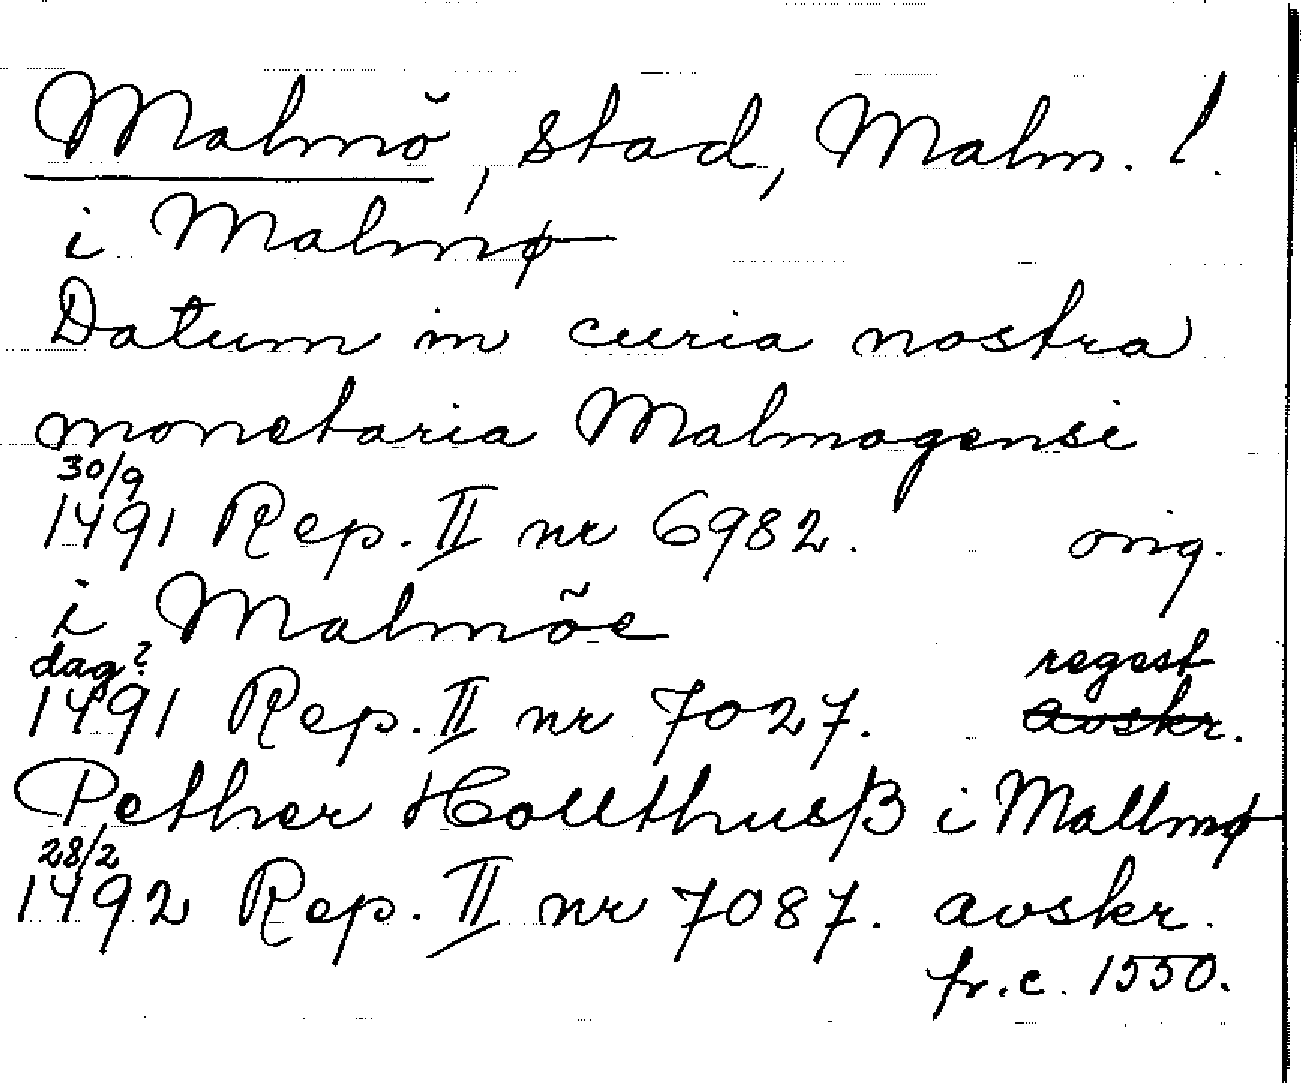 Malmö, stad, Malm. l.
i Malmø
Datum in curia nostra
monetaria Malmogensi
30/9
1491 Rep. II nr 6982. orig.
i Malmõe
dag? regest
1491 Rep. II nr 7027. avskr.
Pether Hollthusß i Mallmø
28/2
1492 Rep. II nr 7087. avskr.
fr. c. 1550.